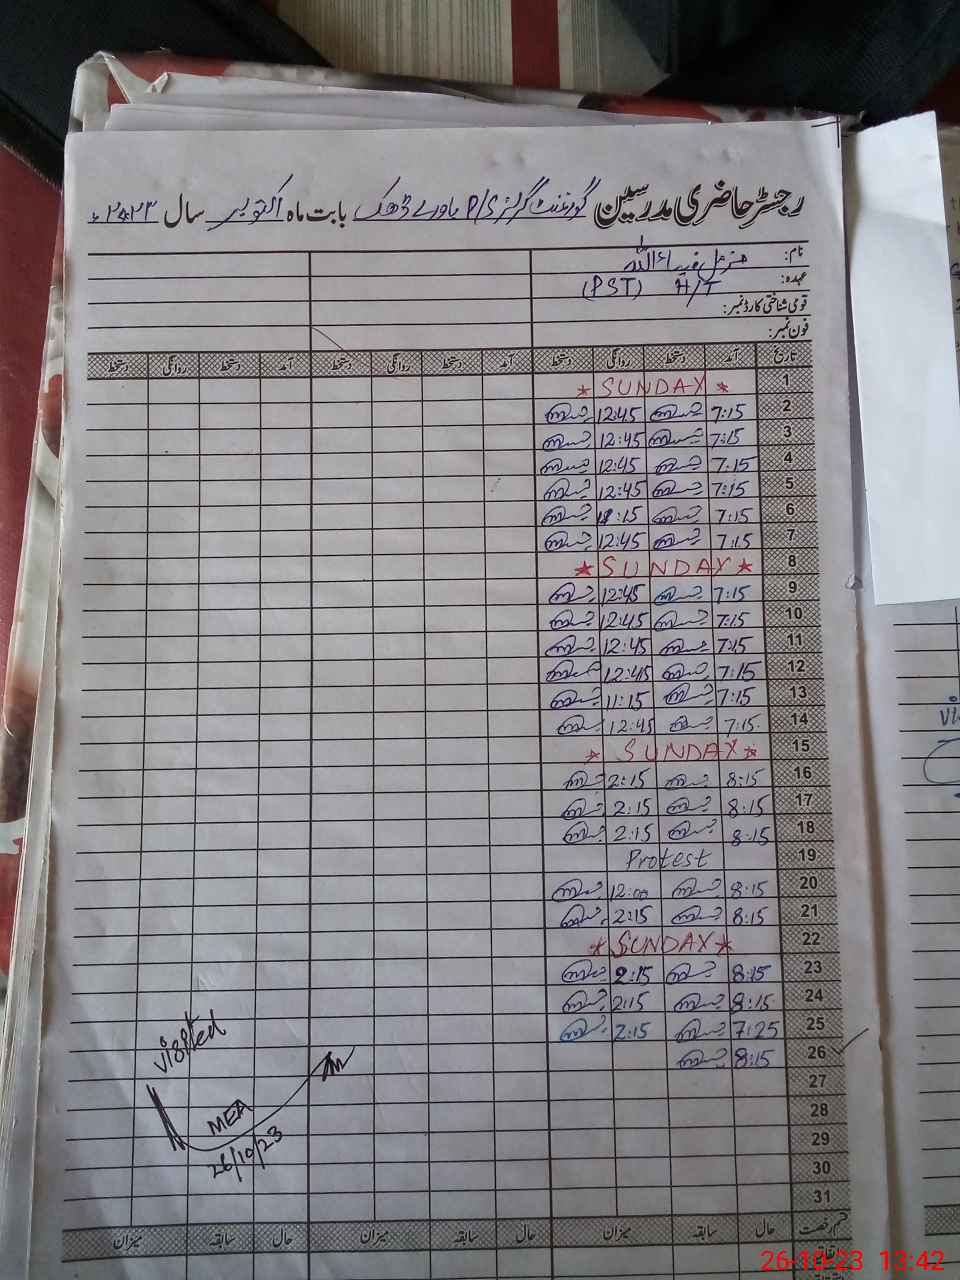 رجسٹر حاضری مدرسین گورنمنٹ گرلز P/S بابت ماہ اکتوبر سال ۲۰۲۳ء
نام:
عہدہ: H/T (PST)
قومی شناختی کارڈ نمبر:
فون نمبر:
تاریخ آمد دستخط روانگی دستخط آمد دستخط روانگی دستخط آمد دستخط روانگی دستخط
1 * SUNDAY *
2 7:15 12:45
3 7:15 12:45
4 7:15 12:45
5 7:15 12:45
6 7:15 11:15
7 7:15 12:45
8 * SUNDAY *
9 7:15 12:45
10 7:15 12:45
11 7:15 12:45
12 7:15 12:45
13 7:15 11:15
14 7:15 12:45
15 * SUNDAY *
16 8:15 2:15
17 8:15 2:15
18 8:15 2:15
19 Protest
20 8:15 12:00
21 8:15 2:15
22 * SUNDAY *
23 8:15 2:15
24 8:15 2:15
25 7:25 2:15
26 8:15
27
28
29
30
31
visited
MEA
26/10/23
قسم رخصت حال سابقہ میزان حال سابقہ میزان حال سابقہ میزان
26-10-23 13:42